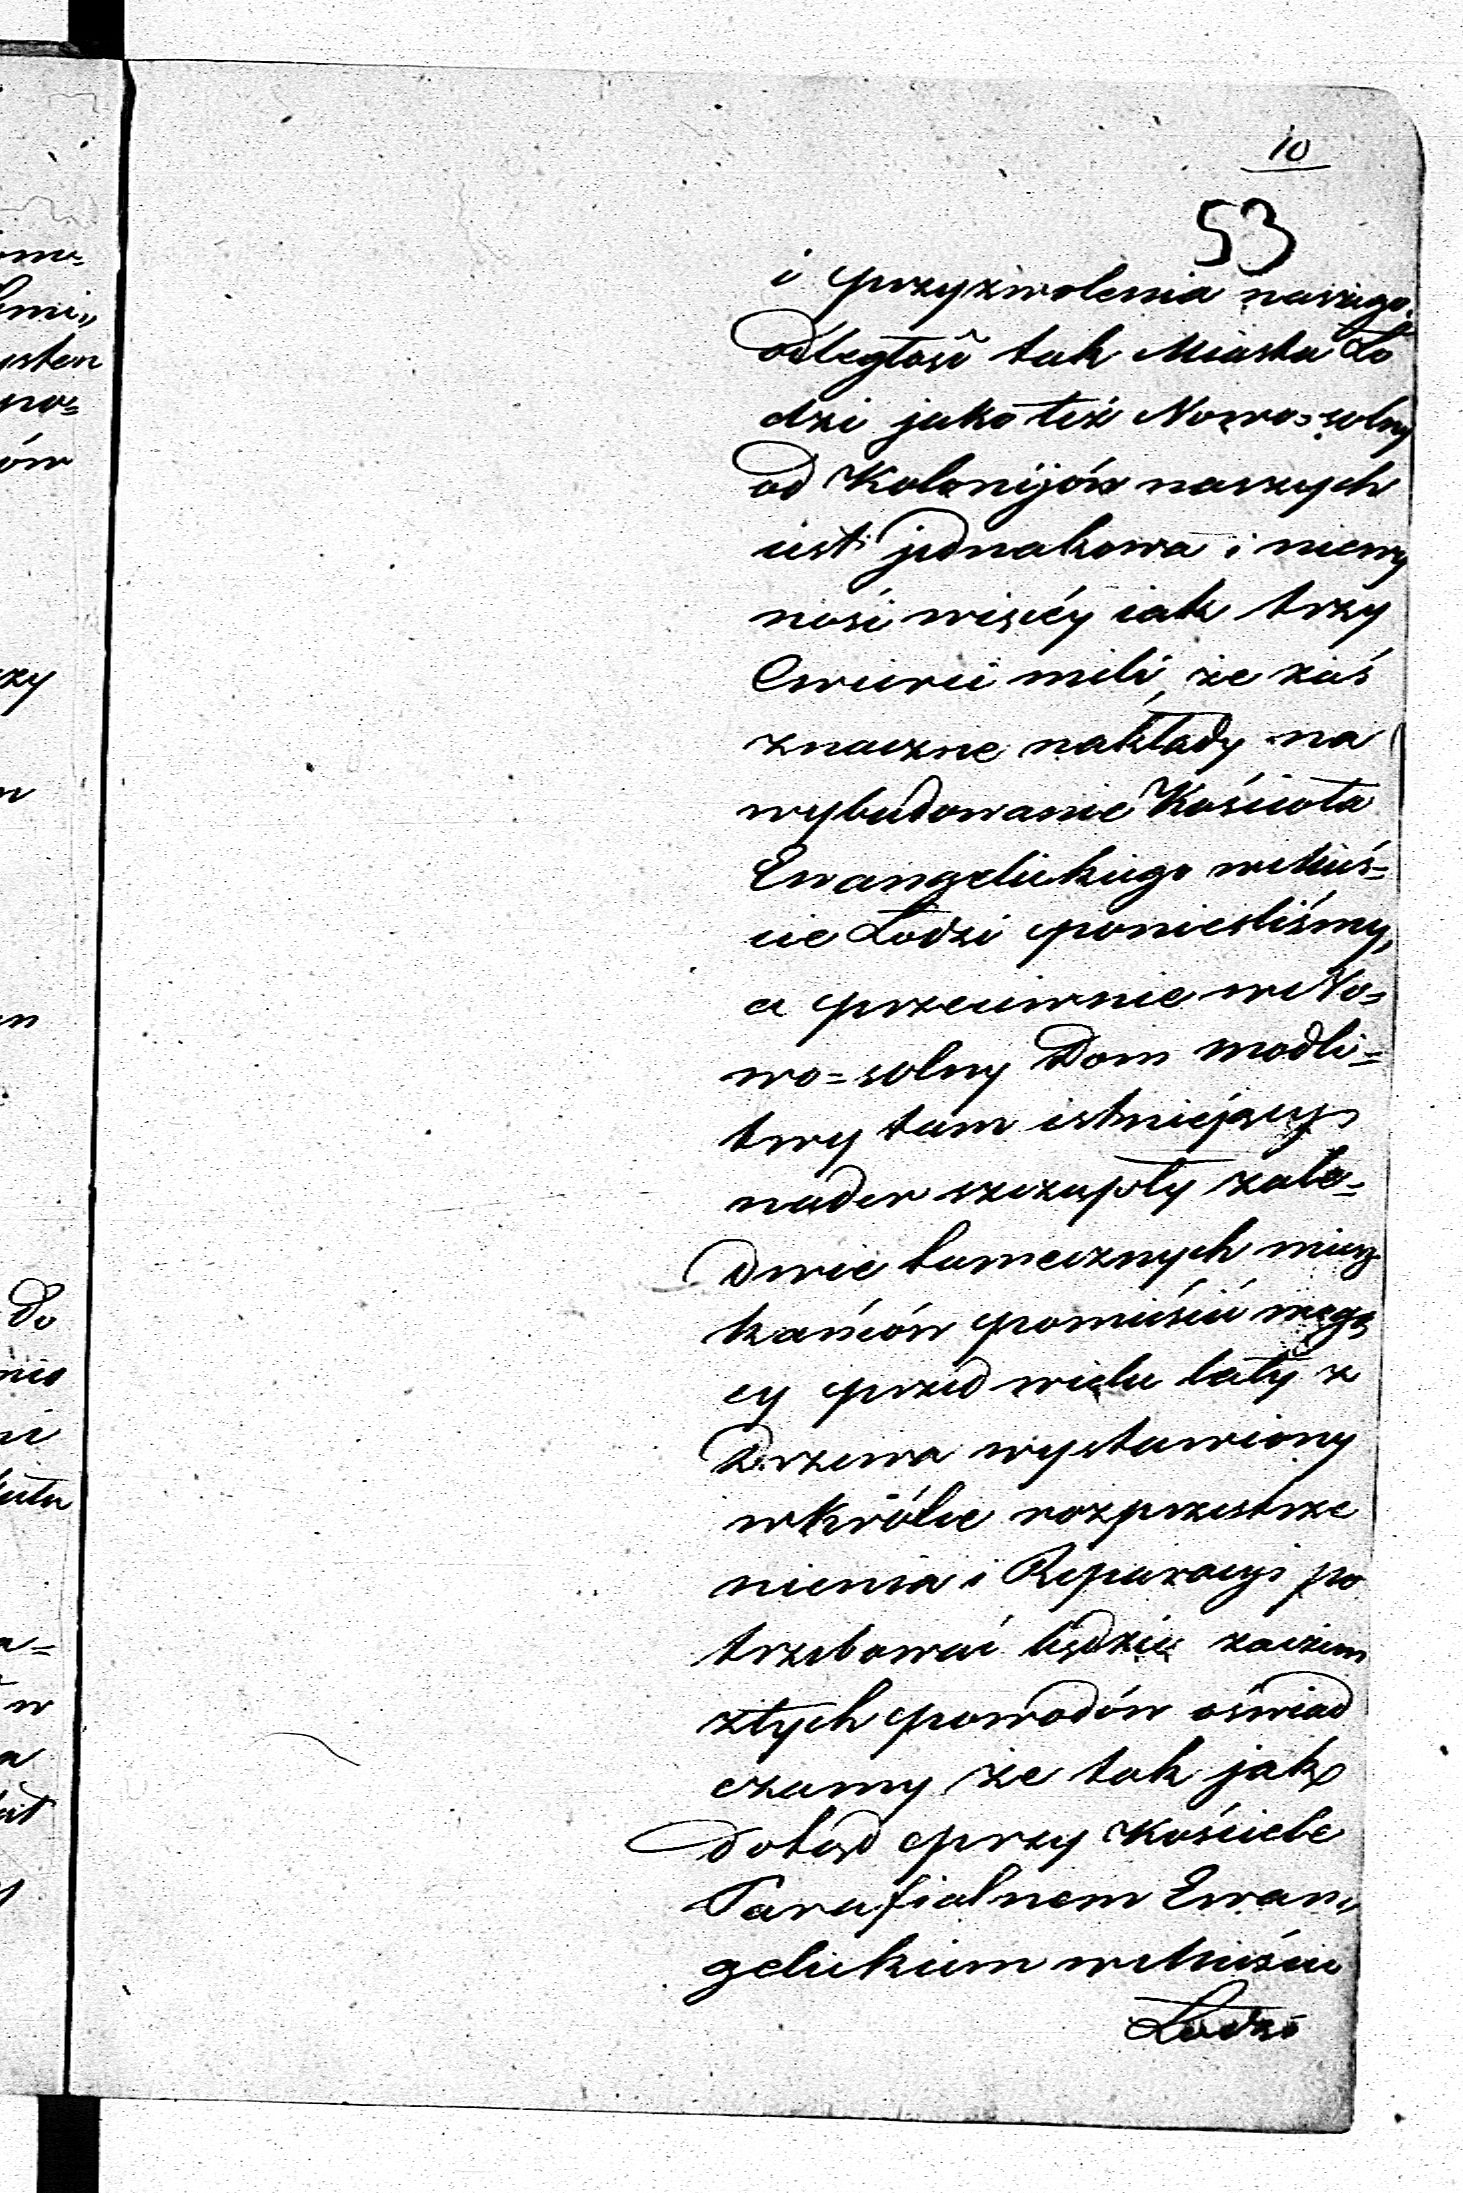 10
53
i przyzwolenia naszego.
odległość tak Miasta Ło
dzi jako też Nowo=solny
od Kolonijów naszych
iest jednakowa i niewy
nosi więcéy iak trzy
Cwierci mili, że zaś
znaczne nakłady na
wybudowanie Kościoła
Ewangelickiego w Mieś=
cie Łodzi ponieśliśmy,
a przeciwnie w No=
wo=solny Dom modli=
twy tam istniejący
nader szczupły zale=
dwie tamecznych miesz
kańców pomieścić mogą
cy przed wielu laty z
Drzewa wystawiony
wkrótce rozprzestrze
nienia i Reparacyi po
trzebować będzie zaczem
z tych powodów oświad
czamy że tak jak
dotąd przy Kościele
Parafialnem Ewan„
gelickiem w Mieście
Łodzi
omu=
bmi„
ysten
po=
ów
zy
do
nio
ni
w
a